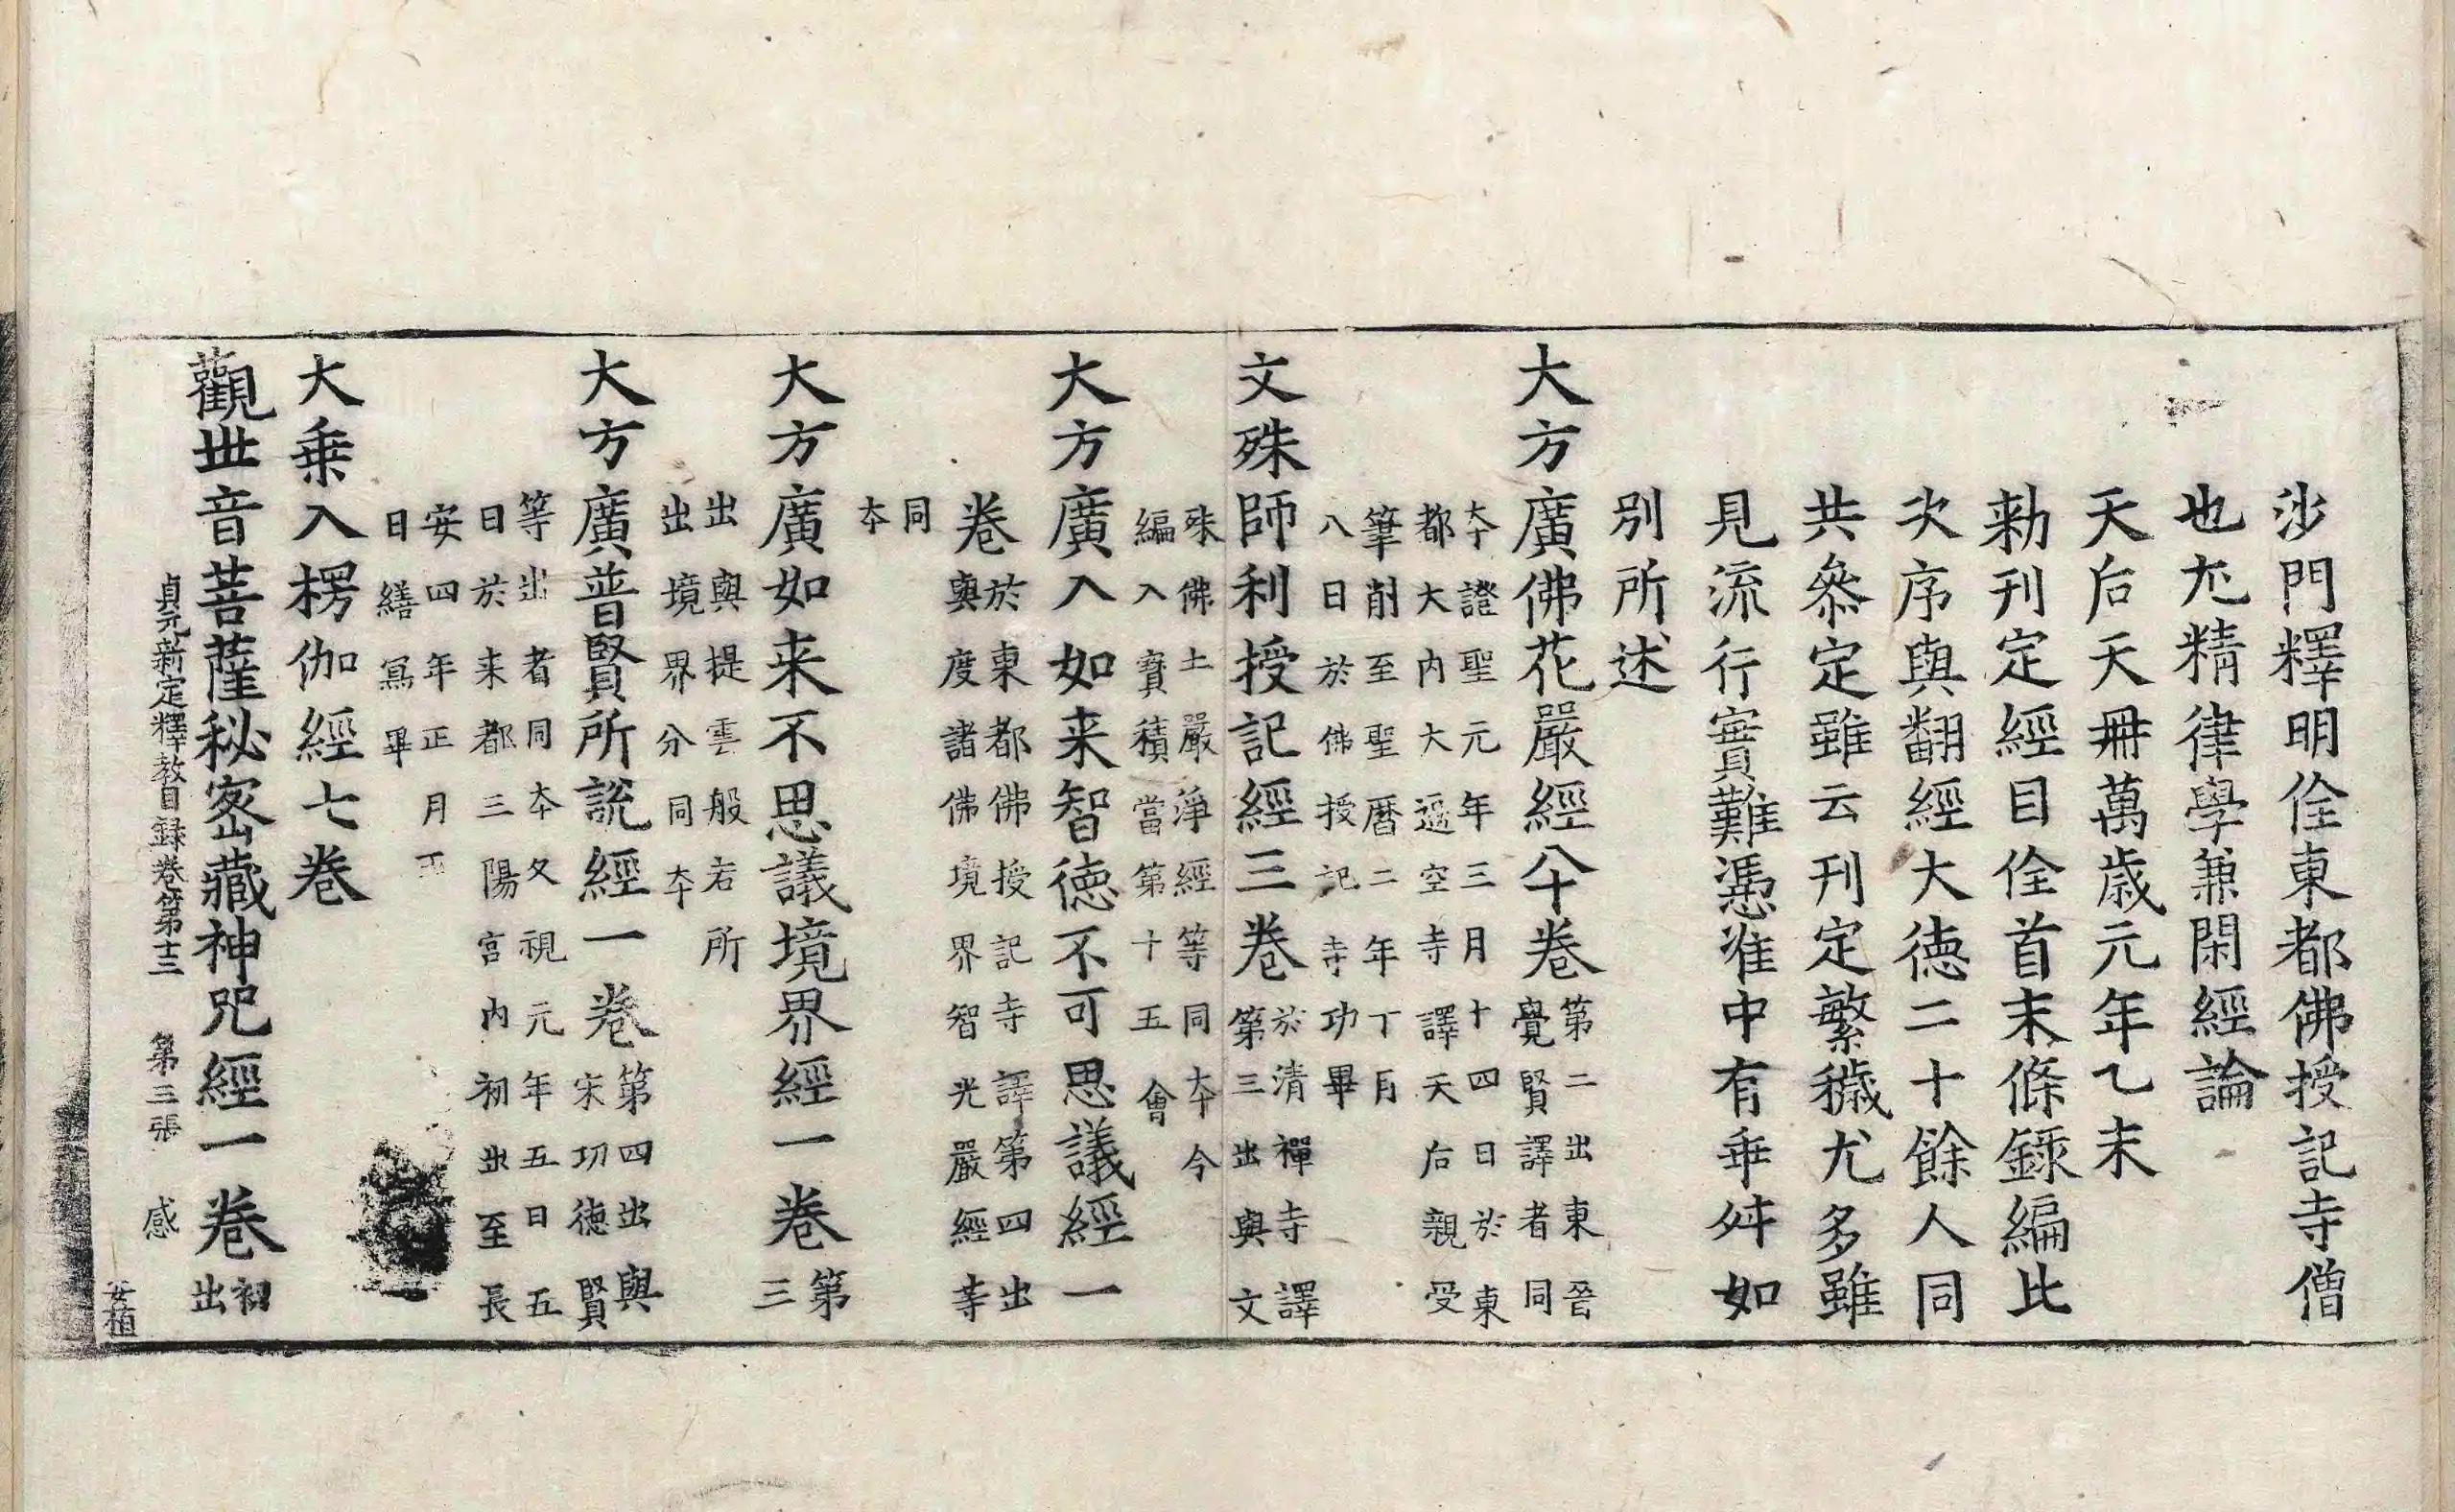 沙門釋明佺東都佛授記寺僧
也尤精律學兼閑經論
天后天冊萬歲元年乙未
勑刊定經目佺首末條錄編比
次序與翻經大德二十餘人同
共叅定雖云刊定繁穢尤多雖
見流行實難憑准中有乖舛如
別所述
大方廣佛花嚴經八十卷第二出東晉
覺賢譯者同
本證聖元年三月十四日於東
都大內大遍空寺譯天后親受
筆削至聖曆二年丁
八日於佛授記寺功畢
文殊師利授記經三卷於清禪寺譯
第三出與文
殊佛土嚴淨經等同本今
編入寶積當第十五會
大方廣入如来智徳不可思議經一
卷於東都佛授記寺譯第四出
與度諸佛境界智光嚴經等
同
本
大方廣如来不思議境界經一卷第
三
出與提雲般若所
出境界分同本
大方廣普賢所說經一卷第四出與
宋功徳賢
等出者同本久視元年五日五
日於来都三陽宮內初出至長
安四年正月五
日繕寫畢
大乗入楞伽經七卷
觀世音菩薩秘密藏神咒經一卷初
出
貞元新定釋教目録卷第十三 第三張 感